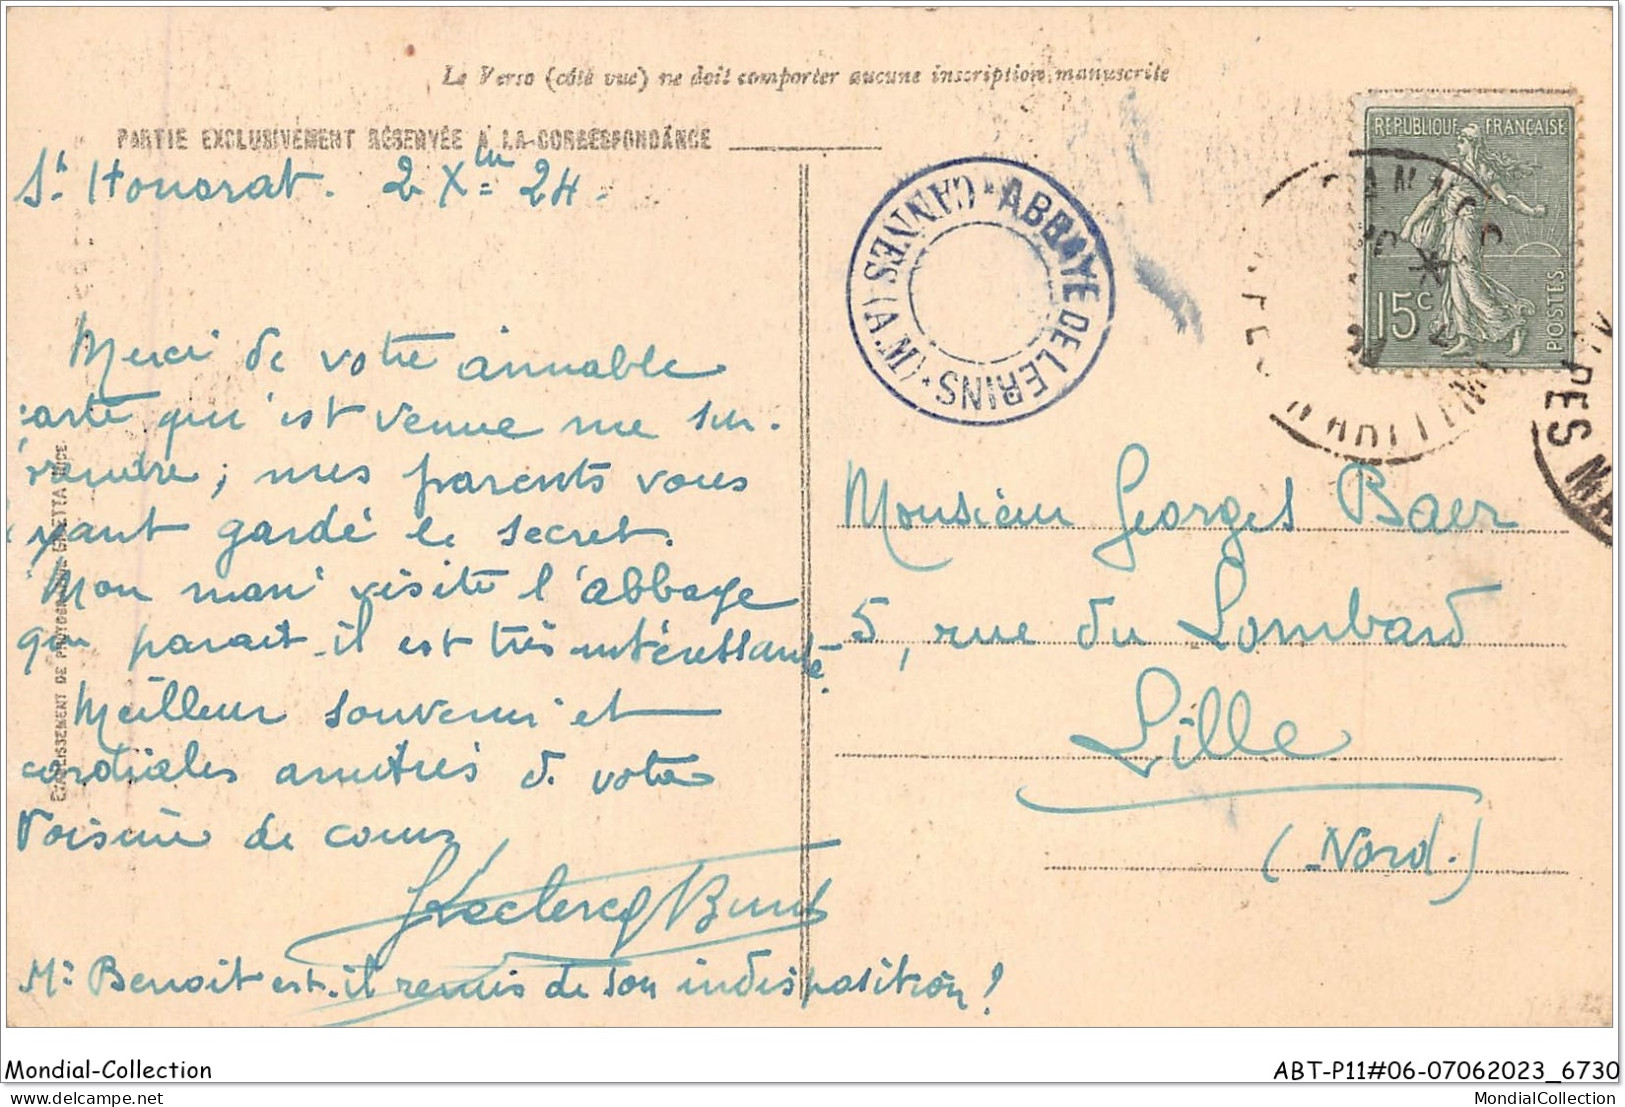 Le Verso (côté vue) ne doit comporter aucune inscription manuscrite
PARTIE EXCLUSIVEMENT RÉSERVÉE A LA CORRESPONDANCE
St Honorat. 2 Xbre 24.
Merci de votre aimable
carte qui est venue me sur-
prendre, mes parents vous
ayant gardé le secret.
Mon mari visite l'abbaye
qui parait-il est très intéressante.
Meilleur souvenir et
cordiales amitiés d. votre
Voisine de cœur
Leclercq
Mr Benoit est-il remis de son indisposition?
ABBAYE DE LERINS
CANNES (A.M.)
REPUBLIQUE FRANÇAISE
15c
POSTES
Monsieur Georges Baer
5, rue du Lombard
Lille
(Nord.)
ETABLISSEMENT DE
Mondial-Collection
ABT-P11#06-07062023_6730
delcampe.net
MondialCollection